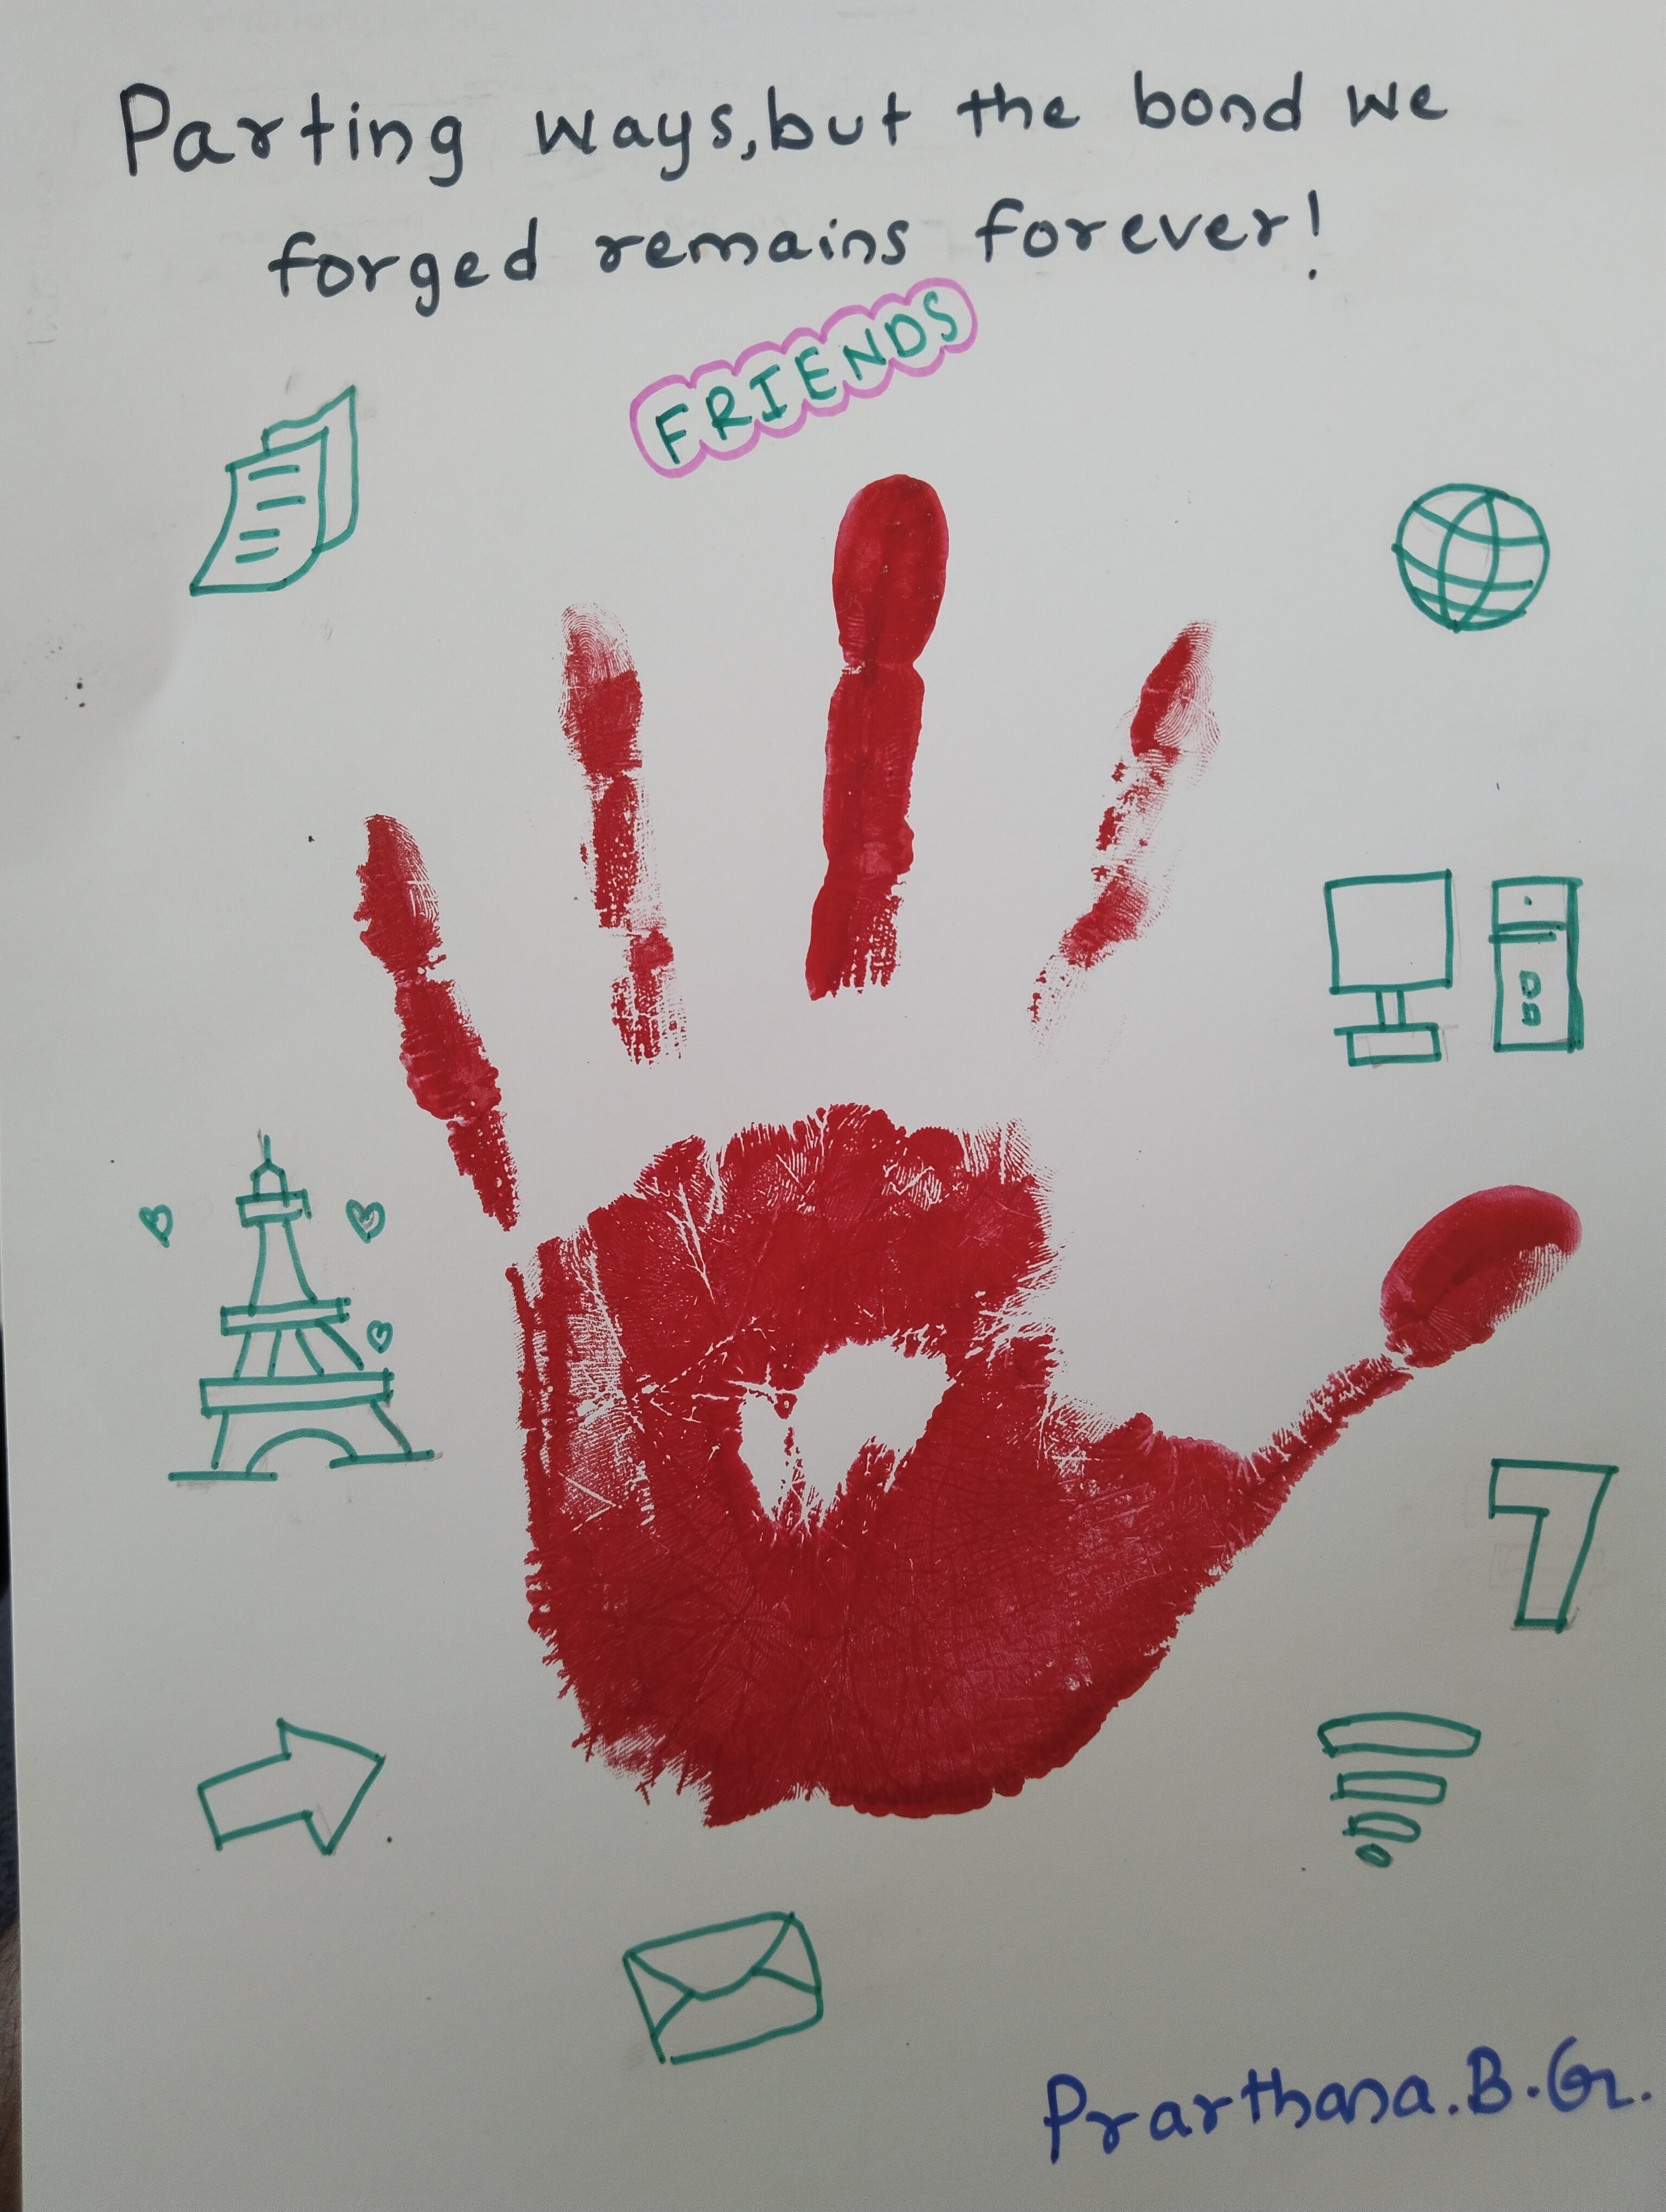 Parting ways, but the bond we
forged remains forever!
FRIENDS
7
Prarthana.B.G.